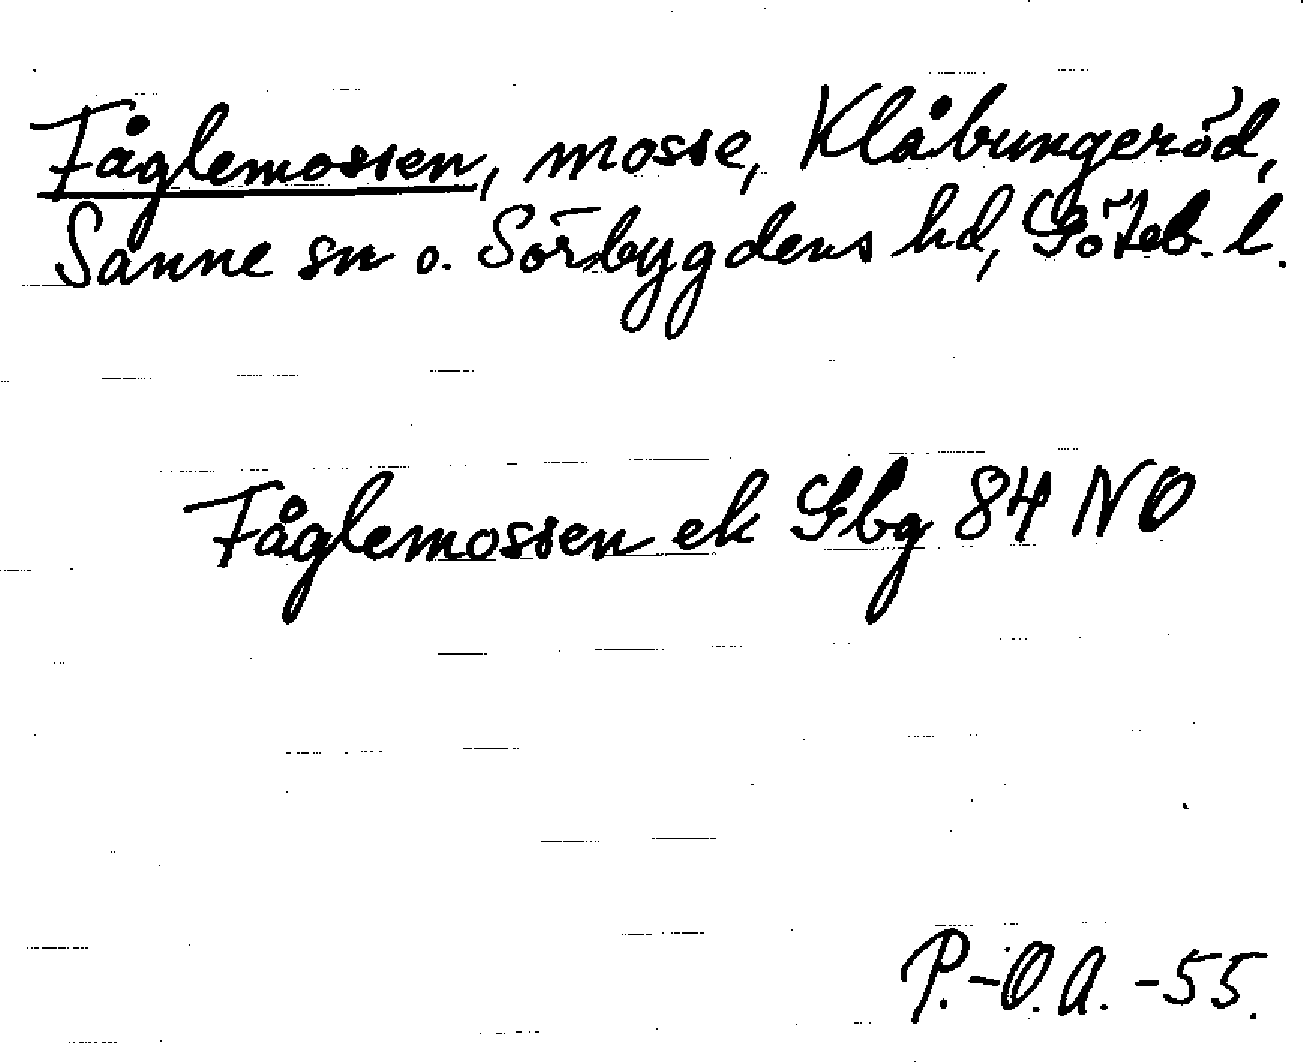 Fåglemossen, mosse, Klåbungeröd,
Sanne sn o. Sörbygdens hd, Göteb. l.
Fåglemossen ek Gbg 84 NO
P.-O.A. -55.